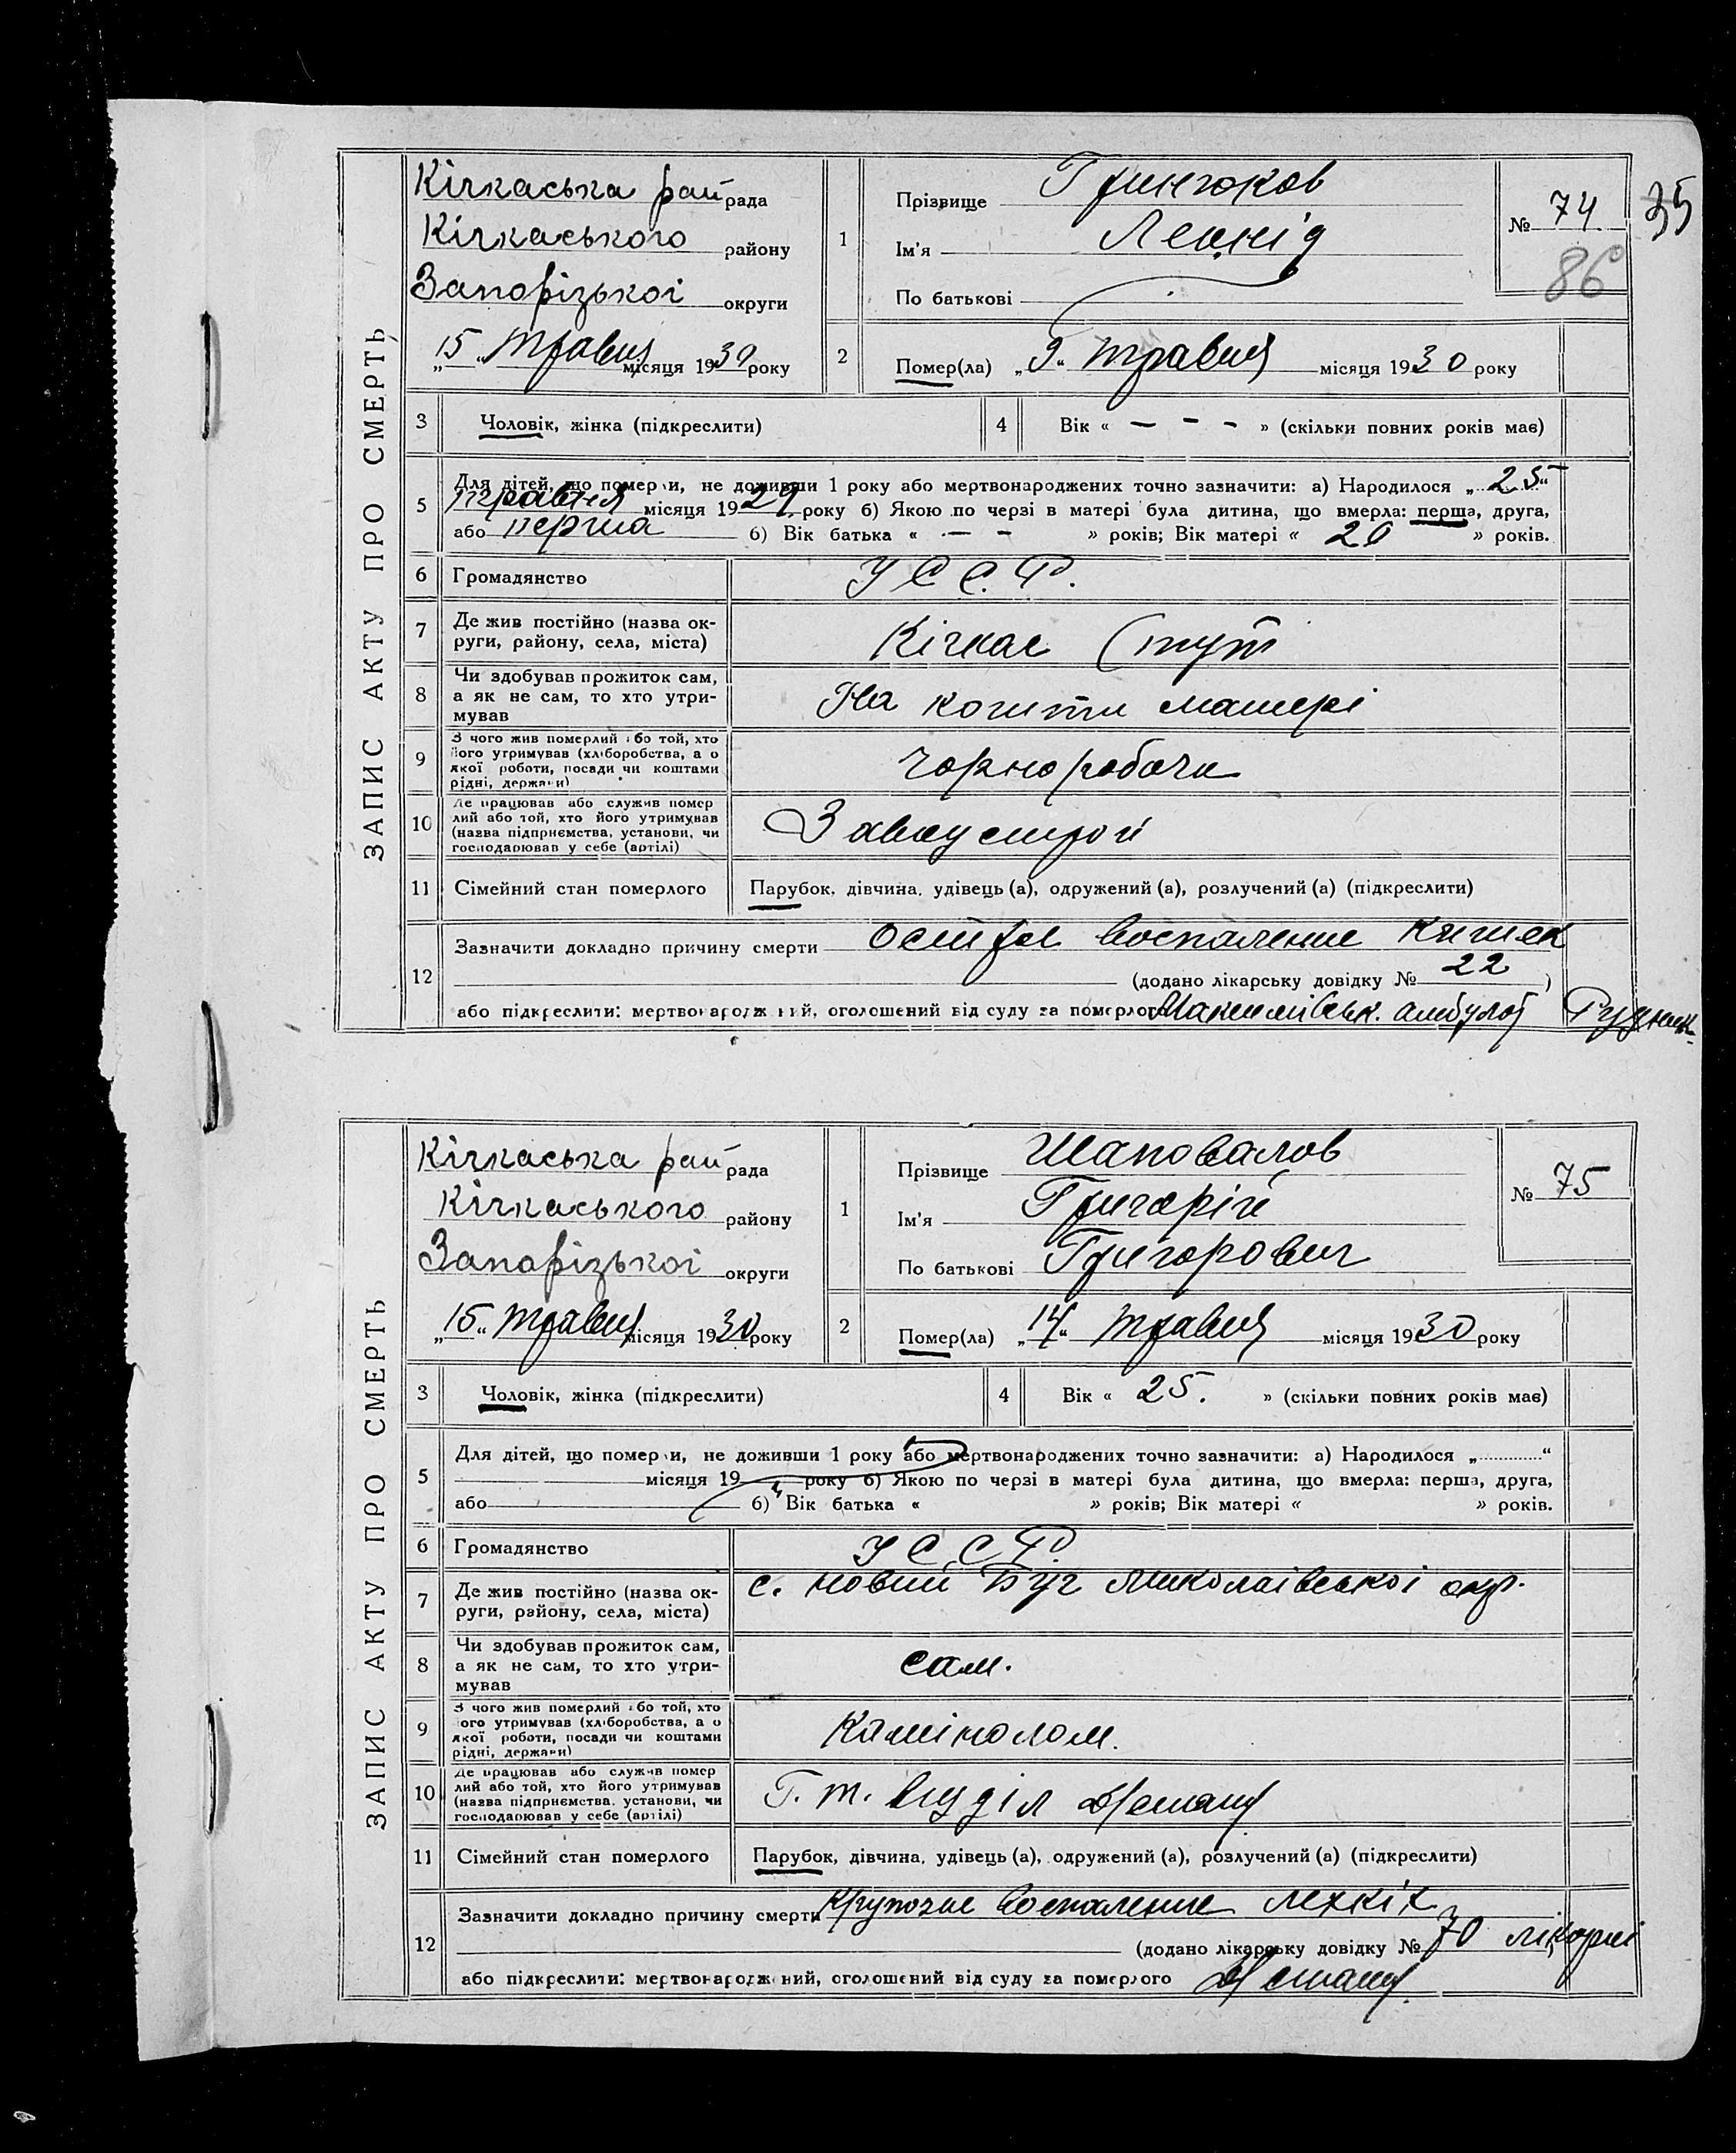 ЗАПИС АКТУ ПРО СМЕРТЬ
Кічкаська рай рада
Кічкаського району
Запорізької округи
„15“ травня місяця 1930 року
1
Прізвище
Ім'я Леонід
По батькові
№ 74
35
86
2
Помер(ла) „9“ травня місяця 1930 року
3 Чоловік, жінка (підкреслити)
4 Вік « – – – » (скільки повних років має)
5
Для дітей, що померли, не доживши 1 року або мертвонароджених точно зазначити: а) Народилося „25“
травня місяця 1929 року б) Якою по черзі в матері була дитина, що вмерла: перша, друга,
або перша б) Вік батька « – – » років; Вік матері « 20 » років.
6 Громадянство УССР.
7 Де жив постійно (назва ок-
руги, району, села, міста)
Кічкас (тут
8 Чи здобував прожиток сам,
а як не сам, то хто утри-
мував
На кошти матері
9 З чого жив померлий або той, хто
його утримував (хліборобства, а о
якої роботи, посади чи коштами
рідні, держави)
чорноробоча
10 Де працював або служив помер
лий або той, хто його утримував
(назва підприємства, установи, чи
господарював у себе (артілі)
11 Сімейний стан померлого Парубок, дівчина, удівець (а), одружений (а), розлучений (а) (підкреслити)
12
Зазначити докладно причину смерти острое воспаление кишек
(додано лікарську довідку № 22 )
або підкреслити: мертвонароджений, оголошений від суду за померлого амбулат
ЗАПИС АКТУ ПРО СМЕРТЬ
Кічкаська рай рада
Кічкаського району
Запорізької округи
„15“ травня місяця 1930 року
1
Прізвище Шаповалов
Ім'я Григорій
По батькові Григорович
№ 75
2
Помер(ла) „14“ травня місяця 1930 року
3 Чоловік, жінка (підкреслити)
4 Вік « 25. » (скільки повних років має)
5
Для дітей, що померли, не доживши 1 року або мертвонароджених точно зазначити: а) Народилося „ “
місяця 19 року б) Якою по черзі в матері була дитина, що вмерла: перша, друга,
або б) Вік батька « » років; Вік матері « » років.
6 Громадянство УССР.
7 Де жив постійно (назва ок-
руги, району, села, міста)
с. Новий Буг Миколаівської окр.
8 Чи здобував прожиток сам,
а як не сам, то хто утри-
мував
сам.
9 З чого жив померлий або той, хто
його утримував (хліборобства, а о
якої роботи, посади чи коштами
рідні, держави)
Камінолом.
10 Де працював або служив помер
лий або той, хто його утримував
(назва підприємства, установи, чи
господарював у себе (артілі)
Г. т. відділ
11 Сімейний стан померлого Парубок, дівчина, удівець (а), одружений (а), розлучений (а) (підкреслити)
12
Зазначити докладно причину смерти Крупозне воспаление легкіх
(додано лікарську довідку № 70 лікарні
або підкреслити: мертвонароджений, оголошений від суду за померлого